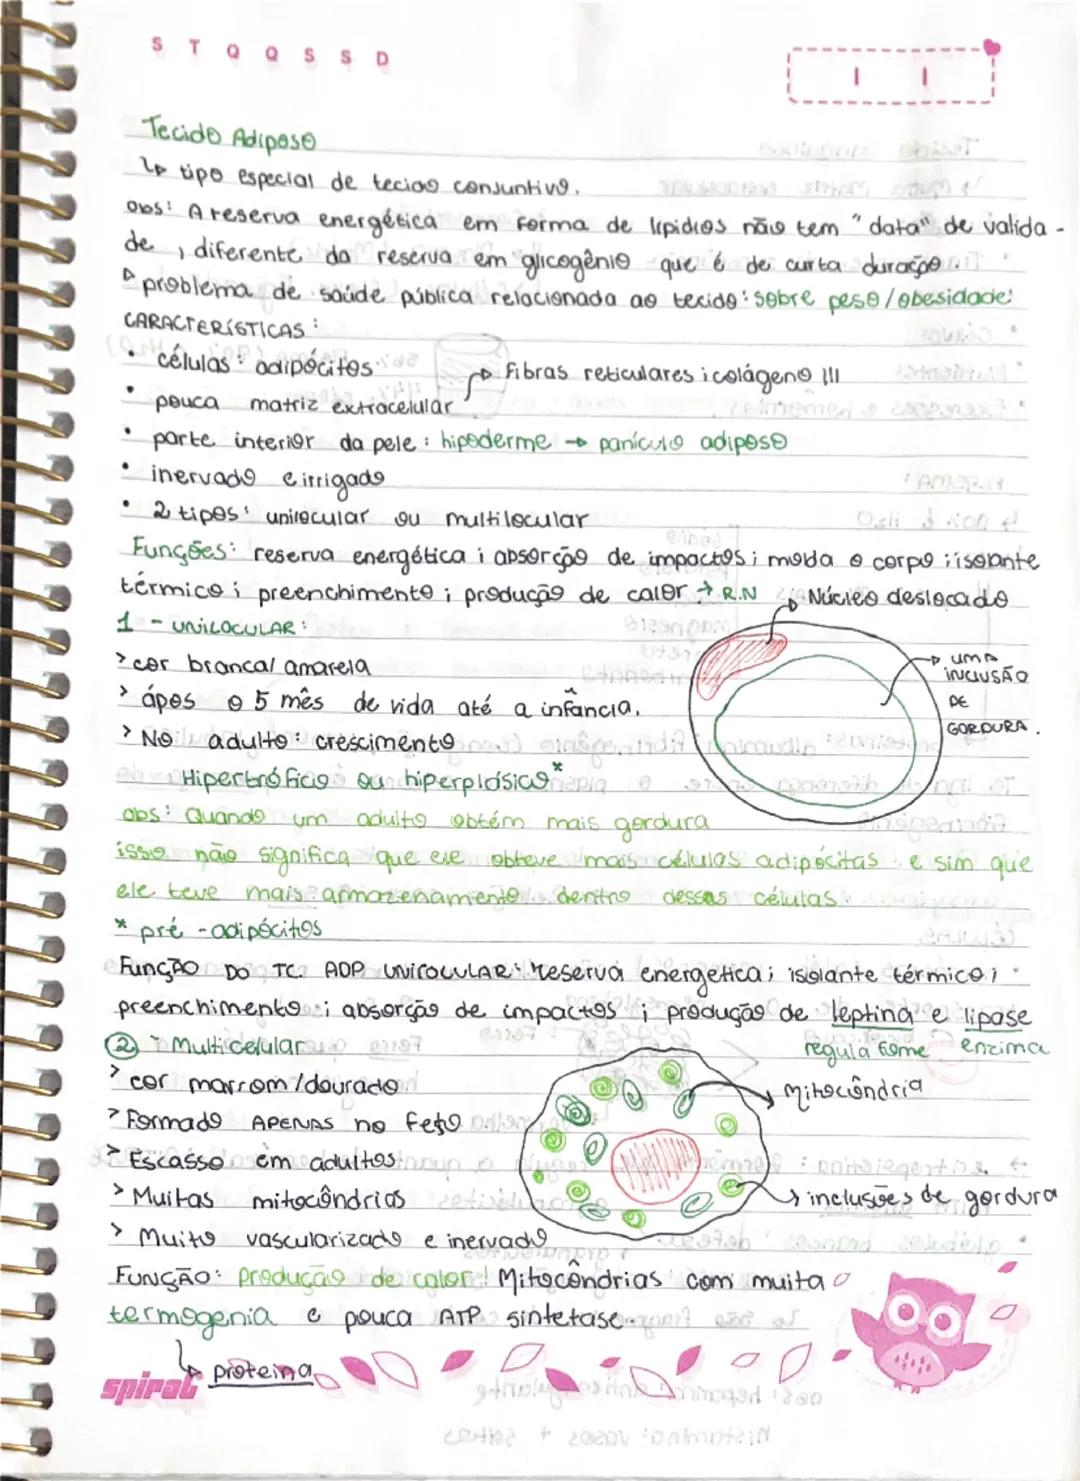 S T Q Q S S D
Tecido Adiposo
↳ tipo especial de tecido conjuntivo.
obs: A reserva energética em forma de lipídios não tem "data" de valida-
de, diferente da reserva em glicogênio que é de curta duração.
problema de saúde pública relacionada ao tecido: sobre peso/obesidade
CARACTERÍSTICAS:
• células: adipócitos
→ Fibras reticulares; colágeno III
• pouca matriz extracelular
• parte interior da pele: hipoderme → panículo adiposo
• inervado e irrigado
• 2 tipos: unilocular ou multilocular
Funções: reserva energética; absorção de impactos; molda o corpo; isolante
térmico; preenchimento; produção de calor → R.N
→ Núcleo deslocado
1 - UNILOCULAR:
> cor branca/ amarela
→ UMA
INCLUSÃO
DE
GORDURA.
> ápos o 5 mês de vida até a infância.
> No adulto: crescimento
Hipertrófico ou hiperplásico*
obs: Quando um adulto obtém mais gordura
isso não significa que ele obteve mais células adipócitas e sim que
ele teve mais armazenamento dentro dessas células.
* pré-adipócitos
FUNÇÃO DO TC. ADP UNILOCULAR: reserva energetica; isolante térmico;
preenchimento; absorção de impactos; produção de leptina e lipase
regula fome enzima
2 - Multicelular
→ Mitocôndria
> cor marrom/dourado
> Formado APENAS no feto
> Escasso em adultos
> Muitas mitocôndrias
→ inclusões de gordura
> Muito vascularizado e inervado
FUNÇÃO: Produção de calor! Mitocôndrias com muita
termogenia e pouca ATP sintetase.
↳ proteina
spiral